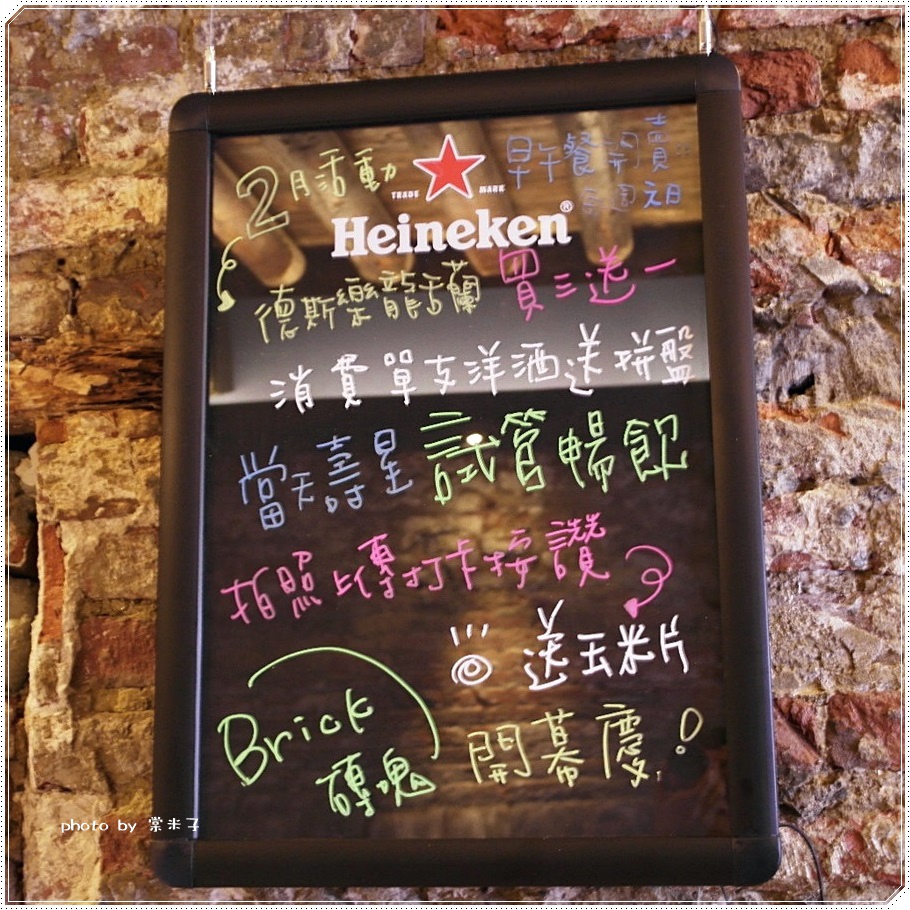 2月活動
早午餐開賣::
每週六日
TRADE MARK
Heineken®
德斯樂龍舌蘭 買三送一
消費單支洋酒送拼盤
當天壽星 試管暢飲
拍照上傳打卡按讚
送玉米片
Brick
磚塊
開幕慶!
photo by 棠米子